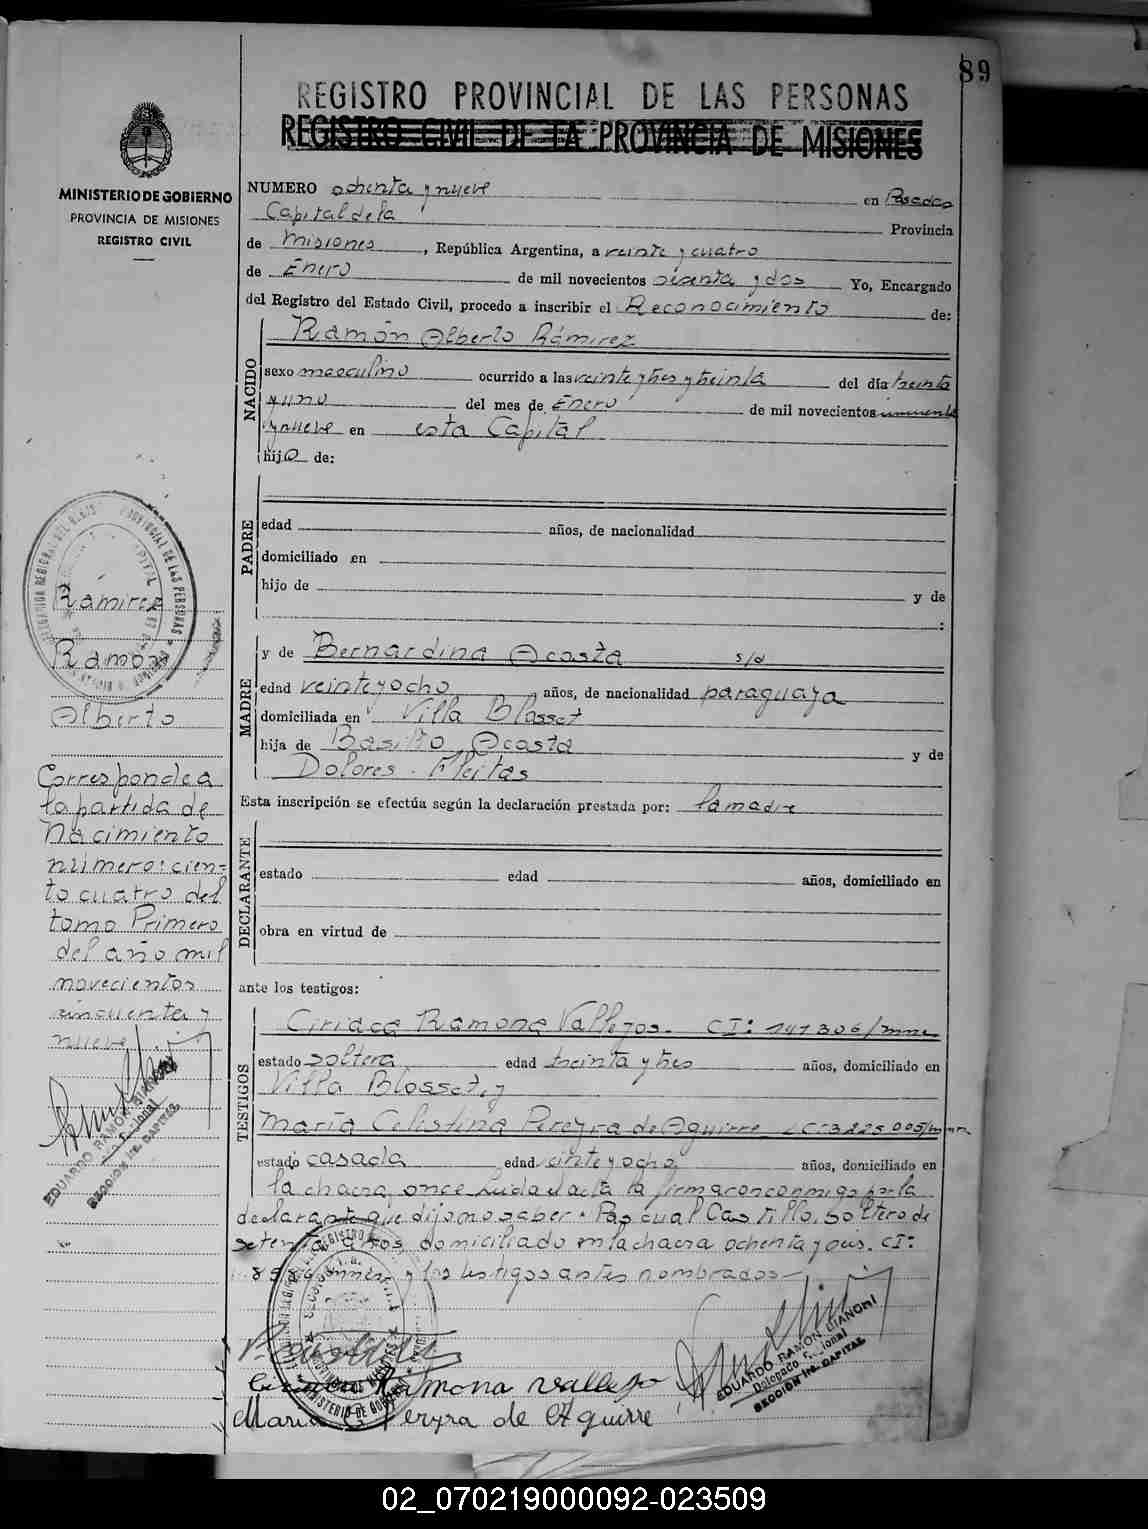 89
REGISTRO PROVINCIAL DE LAS PERSONAS
REGISTRO CIVIL DE LA PROVINCIA DE MISIONES
MINISTERIO DE GOBIERNO
PROVINCIA DE MISIONES
REGISTRO CIVIL
NUMERO ochenta y nueve en Posadas
Capital de la Provincia
de Misiones, República Argentina, a veinte y cuatro
de Enero de mil novecientos sesenta y dos Yo, Encargado
del Registro del Estado Civil, procedo a inscribir el Reconocimiento de:
Ramón Alberto Rámirez
NACIDO
sexo masculino ocurrido a las veinte y tres y treinta del día treinta
y uno del mes de Enero de mil novecientos cincuenta
y nueve en esta Capital
hijo de:
PADRE
edad años, de nacionalidad
domiciliado en
hijo de y de
:
MADRE
y de Bernardina Acosta s/d
edad veinte y ocho años, de nacionalidad paraguaya
domiciliada en Villa Blosset
hija de Basilio Acosta y de
Dolores Fleitas
Esta inscripción se efectúa según la declaración prestada por: la madre
DECLARANTE
estado edad años, domiciliado en
obra en virtud de
ante los testigos:
TESTIGOS
Ciriaca Ramona Vallejos. CI: 141306/mnes
estado soltera edad treinta y tres años, domiciliado en
Villa Blosset y
María Celestina Pereyra de Aguirre LC: 3225005/mnes
estado casada edad veinte y ocho años, domiciliado en
la chacra once Leida el acta la firmaron conmigo por la
declarante que dijo no saber. Pascual Castillo, soltero de
setenta años, domiciliado en la chacra ochenta y seis. CI:
y los testigos antes nombrados
Ramírez
Ramón
Alberto
Corresponde a
la partida de
Nacimiento
número: cien=
to cuatro del
tomo Primero
del año mil
novecientos
cincuenta y
nueve
EDUARDO RAMON BIANCHI
SECCION 1ra. CAPITAL
Ramona Vallejo
Maria C Pereyra de Aguirre
EDUARDO RAMON BIANCHI
Delegado Regional
SECCION 1ra. CAPITAL
02_070219000092-023509